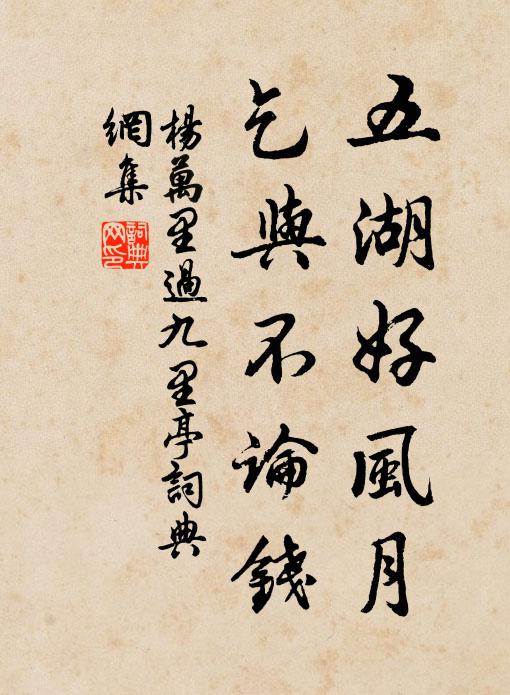 五湖好風月
乞與不論錢
楊萬里過九里亭詞典
網集
詞典
网印